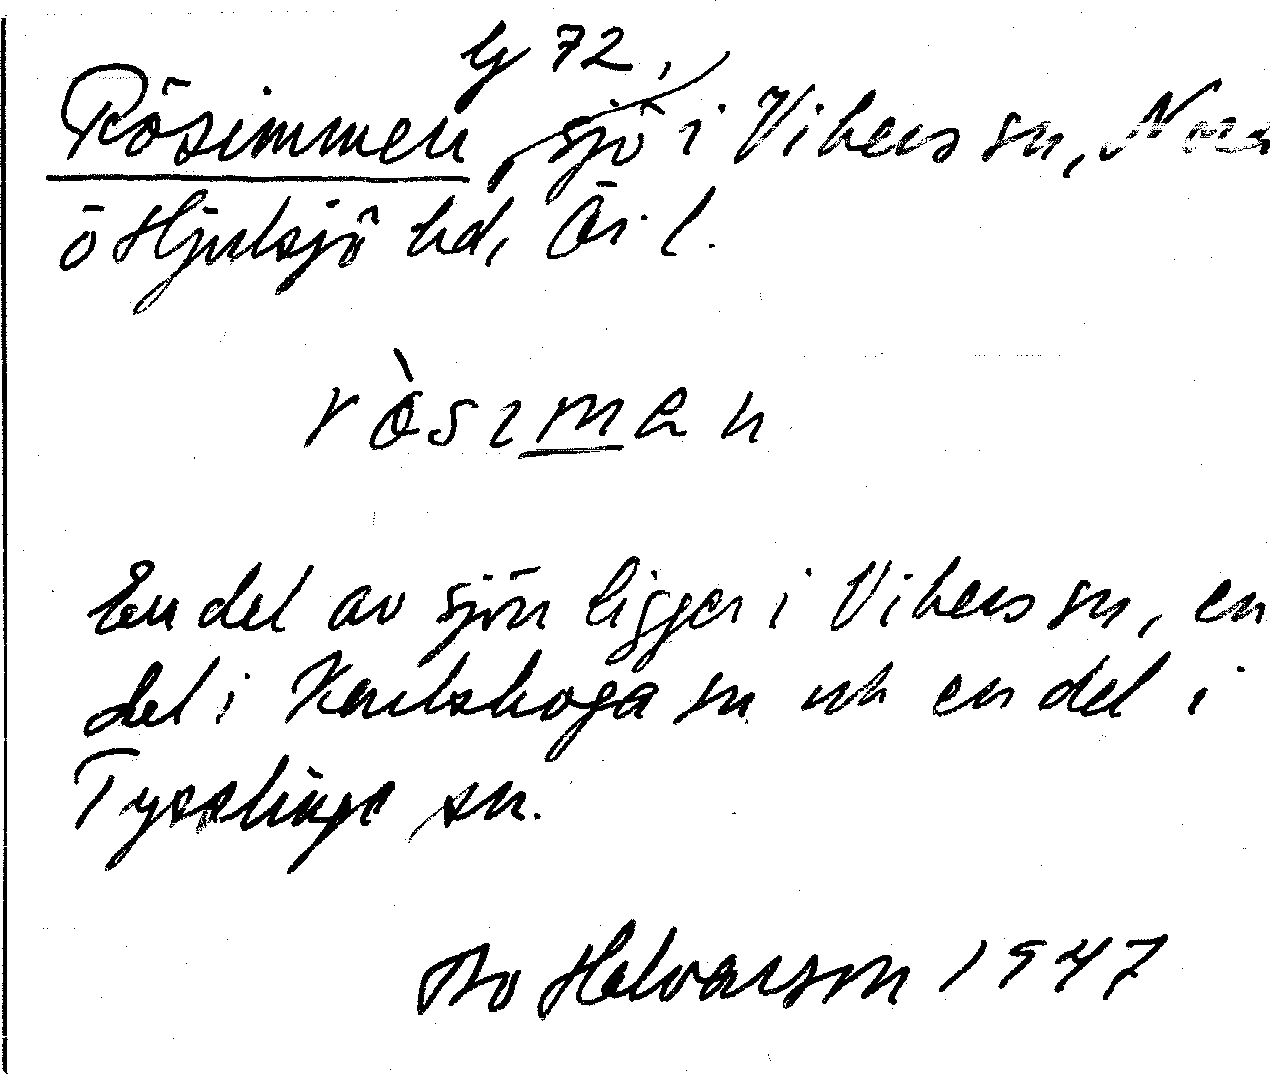 lj 72,
Rösimmen, sjö i Vikers sn, Nora
o Hjulsjö hd, Ör. l.
En del av sjön ligger i Vikers sn, en
del i Karlskoga sn och en del i
Tysslinge sn.
Bo Halvarson 1947